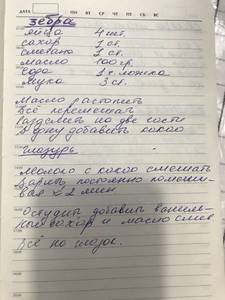 ДАТА ПН ВТ СР ЧТ ПТ СБ ВС
Зебра
яйца 4 шт.
сахар 1 ст.
сметана 1 ст.
масло 100 гр.
сода 1 ч. ложка
мука 3 ст.
Масло растопить
Всё перемешать
Разделить на две части
В одну добавить какао
Глазурь
Молоко с какао смешать
Варить постоянно помеши-
вая ≈ 2 мин
Остудить добавить ваниль-
ный сахар и масло слив.
Всё на глазок.